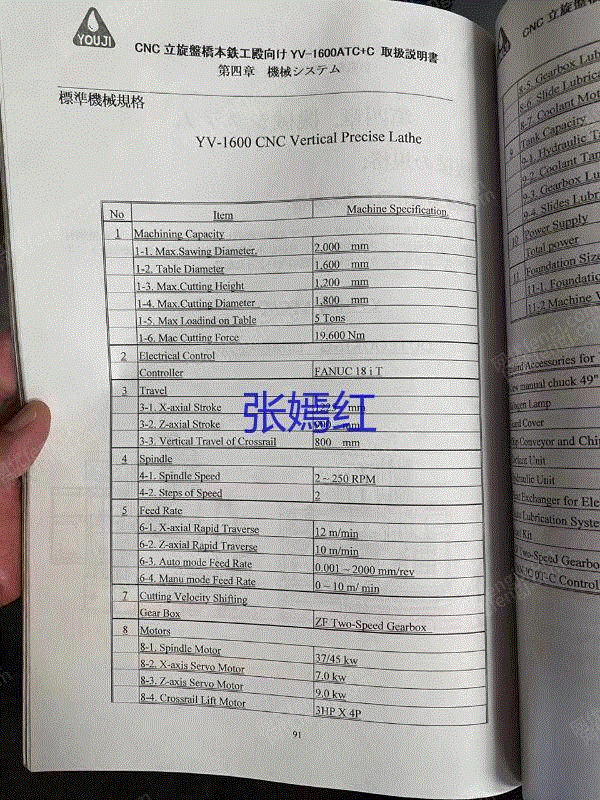 YOUJI
CNC 立旋盤橋本鉄工殿向け YV-1600ATC+C 取扱説明書
第四章 機械システム
標準機械規格
YV-1600 CNC Vertical Precise Lathe
No Item Machine Specification.
1 Machining Capacity
1-1. Max.Sawing Diameter. 2,000 mm
1-2. Table Diameter 1,600 mm
1-3. Max.Cutting Height 1,200 mm
1-4. Max.Cutting Diameter 1,800 mm
1-5. Max Loadind on Table 5 Tons
1-6. Mac Cutting Force 19,600 Nm
2 Electrical Control
Controller FANUC 18 i T
3 Travel
3-1. X-axial Stroke mm
3-2. Z-axial Stroke mm
3-3. Vertical Travel of Crossrail 800 mm
张嫣红
4 Spindle
4-1. Spindle Speed 2 ~ 250 RPM
4-2. Steps of Speed 2
5 Feed Rate
6-1. X-axial Rapid Traverse 12 m/min
6-2. Z-axial Rapid Traverse 10 m/min
6-3. Auto mode Feed Rate 0.001 ~ 2000 mm/rev
6-4. Manu mode Feed Rate 0 ~ 10 m/ min
7 Cutting Velocity Shifting
Gear Box ZF Two-Speed Gearbox
8 Motors
8-1. Spindle Motor 37/45 kw
8-2. X-axis Servo Motor 7.0 kw
8-3. Z-axis Servo Motor 9.0 kw
8-4. Crossrail Lift Motor 3HP X 4P
91
CNC 立旋盤
8-5. Gearbox Lub
8-6. Slide Lubrica
8-7. Coolant Mot
9 Tank Capacity
9-1. Hydraulic Ta
9-2. Coolant Tan
9-3. Gearbox Lu
9-4. Slides Lubri
10 Power Supply
Total power
11 Foundation Size
11-1. Foundation
11-2 Machine W
Accessories for
manual chuck 49"
Lamp
Cover
Conveyor and Chip
Unit
Unit
Exchanger for Ele
Lubrication System
Kit
Two-Speed Gearbox
Control